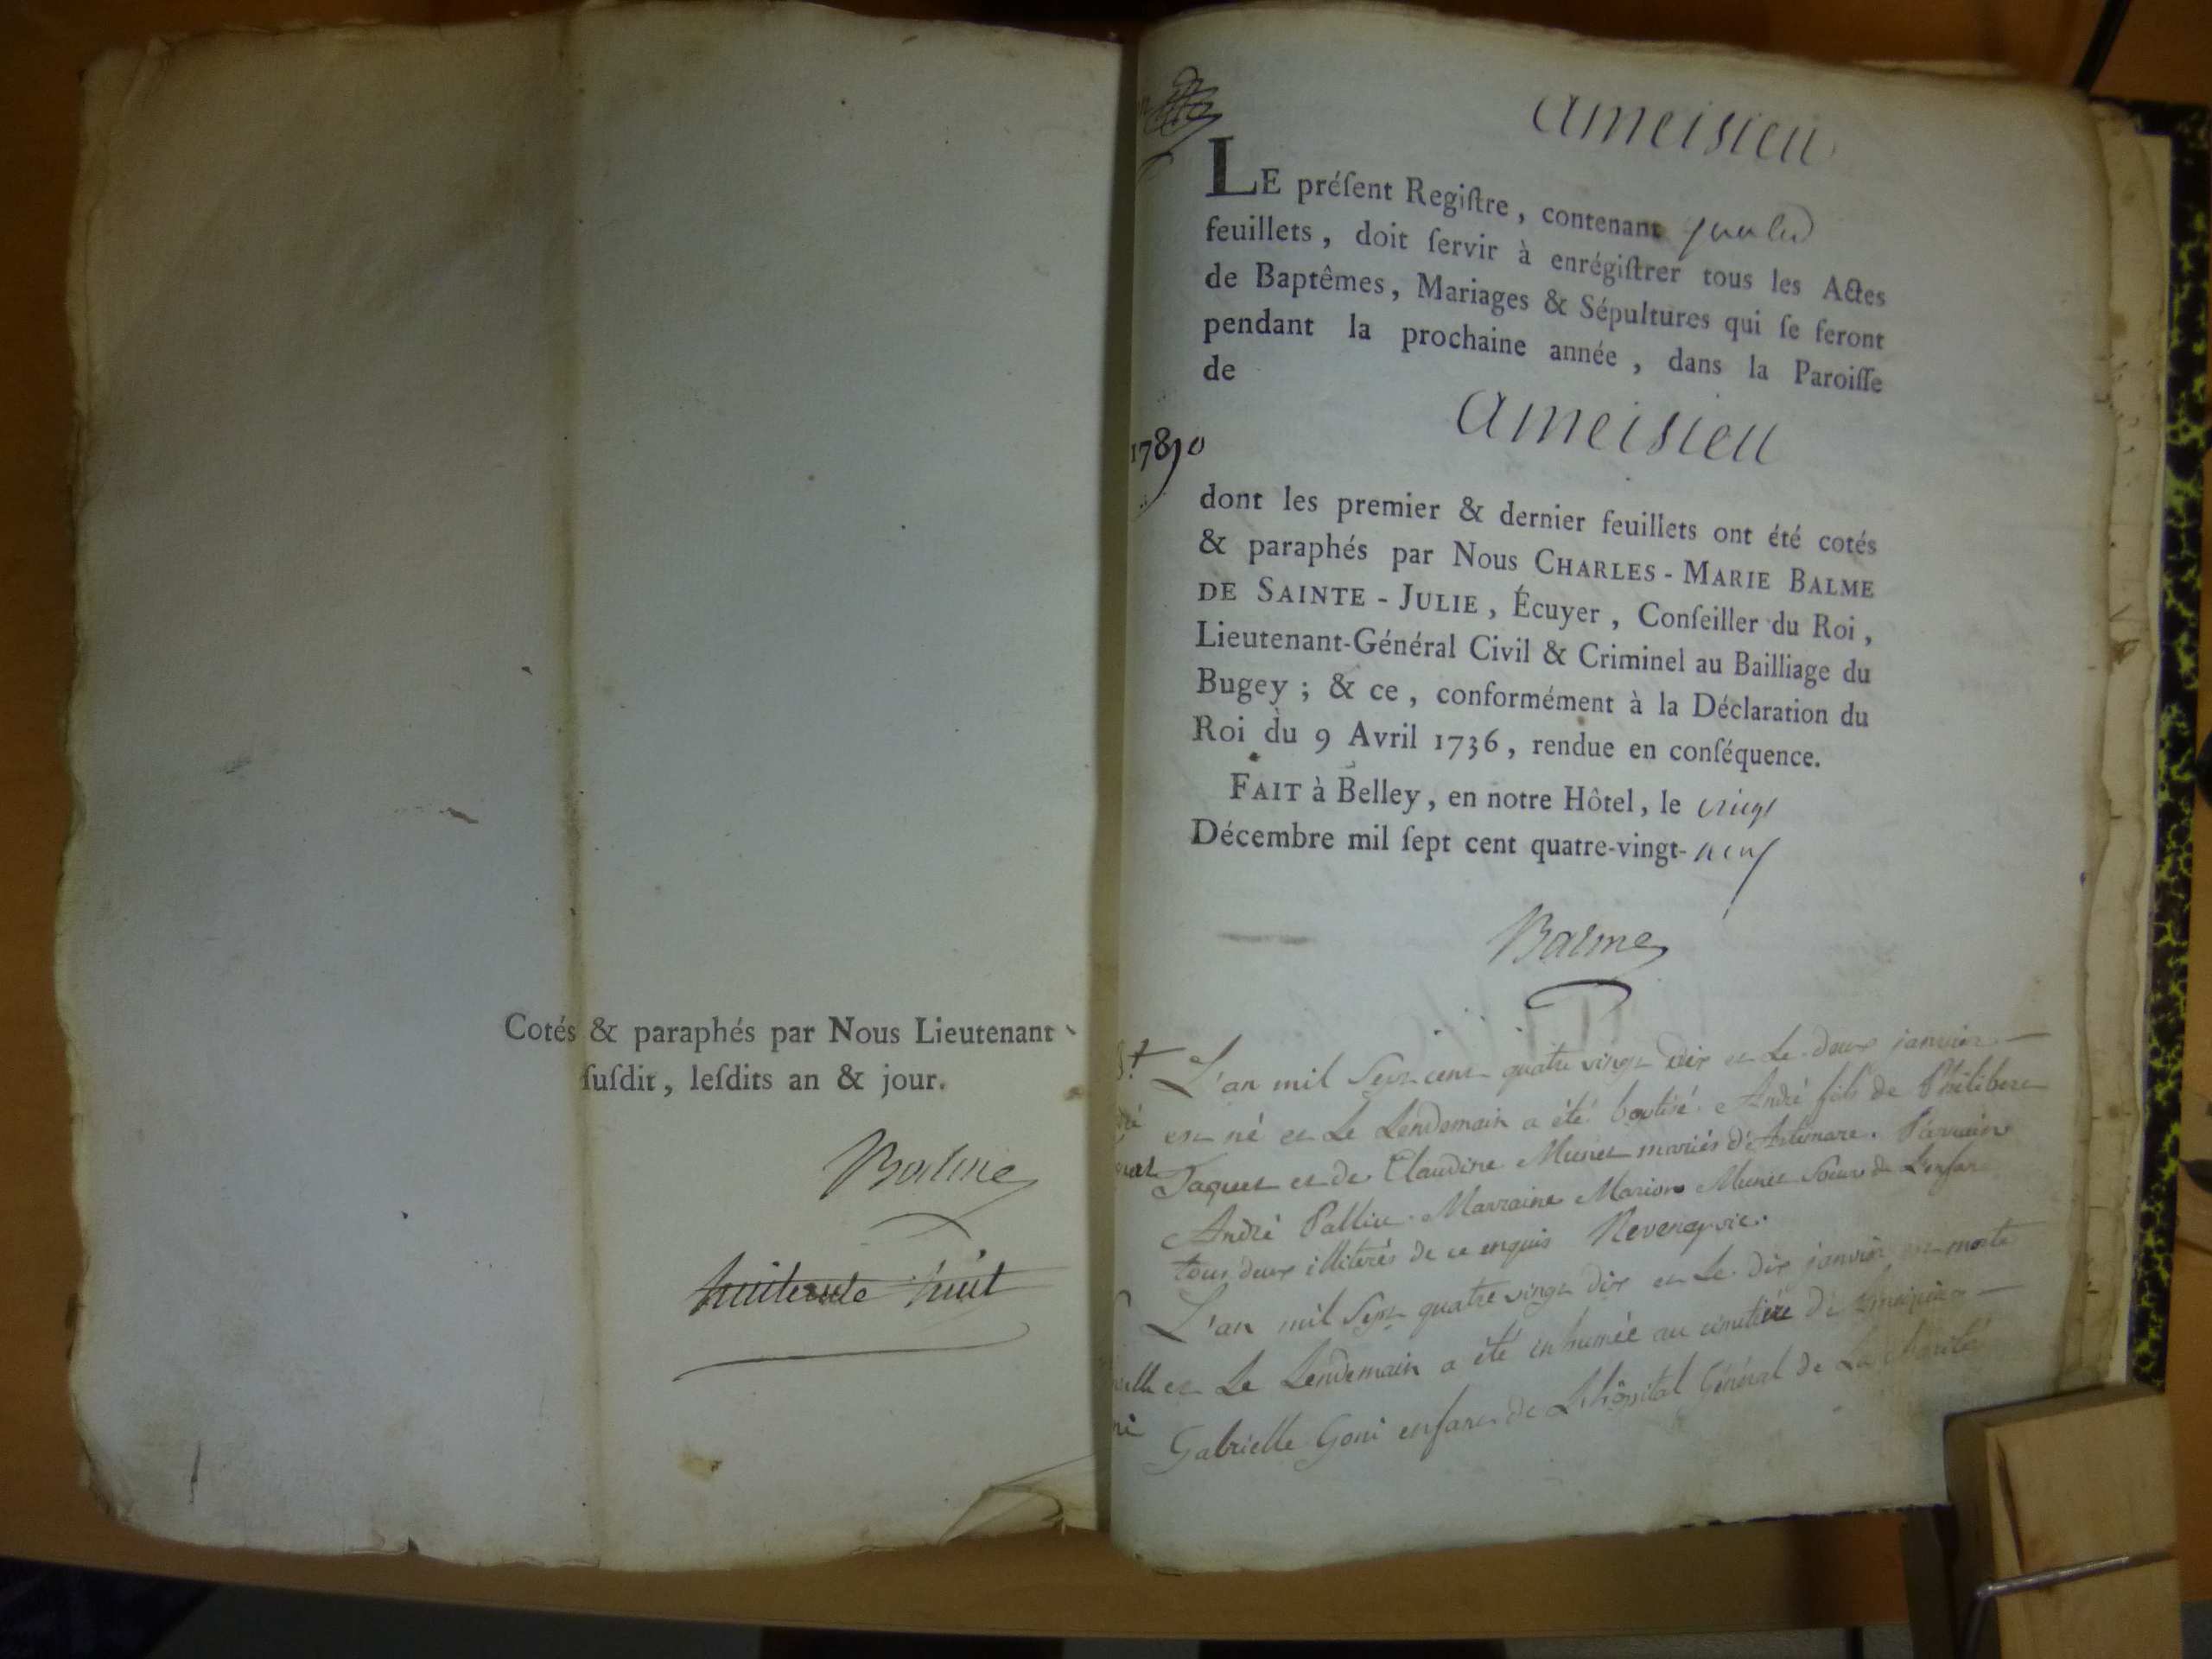 Cotés & paraphés par Nous Lieutenant
ſuſdit, leſdits an & jour.
Balme
huit
ameisieu
LE préſent Regiſtre, contenant
feuillets, doit ſervir à enrégiſtrer tous les Actes
de Baptêmes, Mariages & Sépultures qui ſe feront
pendant la prochaine année, dans la Paroiſſe
de
ameisieu
dont les premier & dernier feuillets ont été cotés
& paraphés par Nous CHARLES-MARIE BALME
DE SAINTE-JULIE, Écuyer, Conſeiller du Roi,
Lieutenant-Général Civil & Criminel au Bailliage du
Bugey; & ce, conformément à la Déclaration du
Roi du 9 Avril 1736, rendue en conſéquence.
FAIT à Belley, en notre Hôtel, le vingt
Décembre mil ſept cent quatre-vingt-neuf
Balme
L'an mil Sept cent quatre vingt dix et Le deux janvier
est né et Le Lendemain a été batisé André fils de Philibert
Jaquet et de Claudine Munet mariés d'Artemare. Parrain
André Pallin Marraine Marion Munet Soeur de L'enfant
tous deux illiterés de ce enquis
L'an mil Sept quatre vingt dix et Le dix janvier est morte
et Le Lendemain a été inhumée au cimetière
Gabrielle Goni enfant de L'hôpital Général de La charité